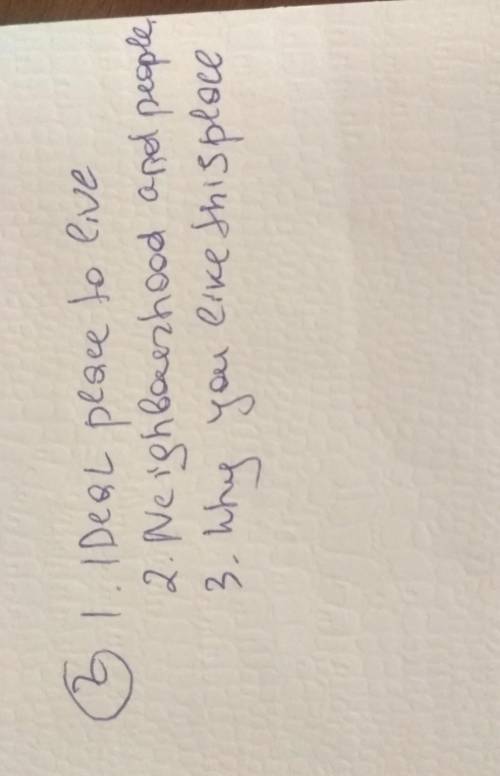 3 1. IDeaL place to live
2. Neighbourhood and people.
3. Why you like this place